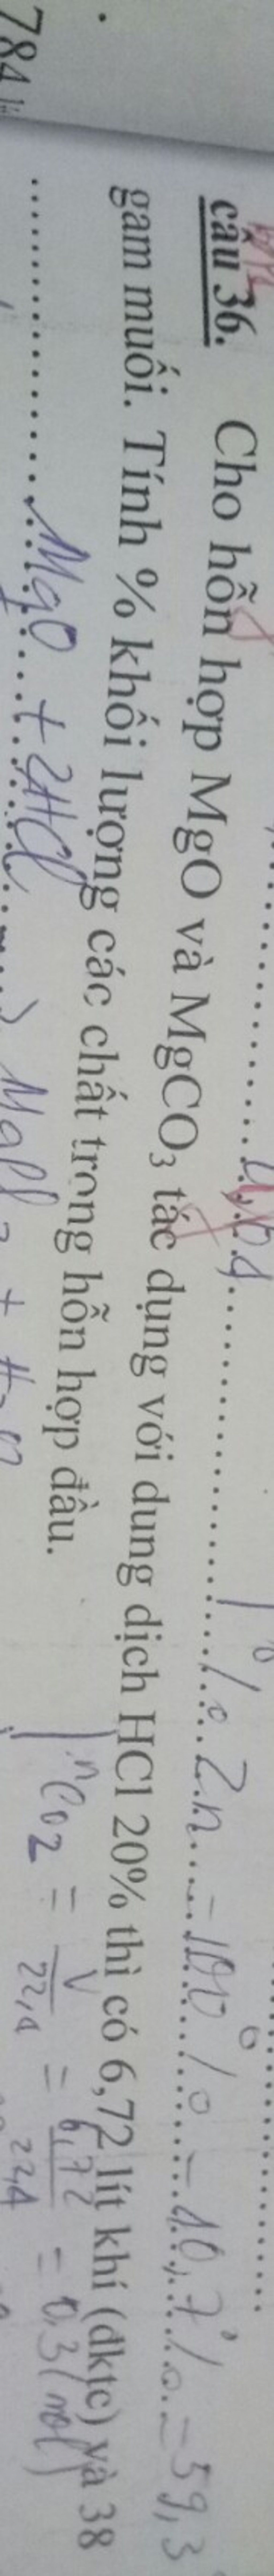 % Zn = 100% - 40,7% = 59,3
câu 36. Cho hỗn hợp MgO và MgCO3 tác dụng với dung dịch HCl 20% thì có 6,72 lít khí (đktc) và 38
gam muối. Tính % khối lượng các chất trong hỗn hợp đầu.
MgO + 2HCl → MgCl2 + H2O
nCO2 = V/22,4 = 6,72/22,4 = 0,3 (mol)
784